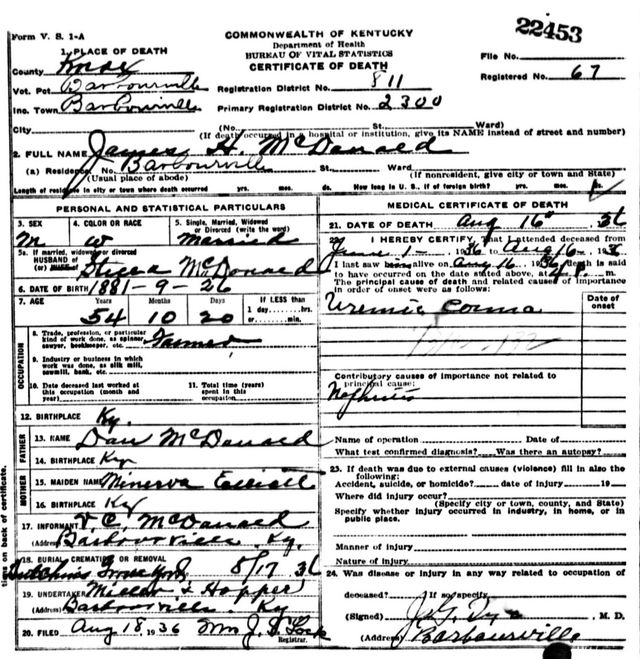 Form V. S. 1-A
COMMONWEALTH OF KENTUCKY
22453
Department of Health
BUREAU OF VITAL STATISTICS
CERTIFICATE OF DEATH
File No.
Registered No. 67
1. PLACE OF DEATH
County Knox
Vot. Pct. Barbourville
Registration District No. 811
Inc. Town Barbourville
Primary Registration District No. 2300
City (No. St. Ward)
(If death occurred in a hospital or institution, give its NAME instead of street and number)
2. FULL NAME James H. McDonald
(a) Residence, No. Barbourville St. Ward
(Usual place of abode) (If nonresident, give city or town and State)
Length of residence in city or town where death occurred yrs. mos. ds. How long in U. S., if of foreign birth? yrs. mos. ds.
PERSONAL AND STATISTICAL PARTICULARS
3. SEX M
4. COLOR OR RACE W
5. Single, Married, Widowed or Divorced (write the word) Married
5a. If married, widowed or divorced
HUSBAND of
(or) WIFE of McDonald
6. DATE OF BIRTH 1881-9-26
7. AGE Years Months Days If LESS than
54 10 20 1 day, hrs.
or min.
OCCUPATION
8. Trade, profession, or particular
kind of work done, as spinner,
sawyer, bookkeeper, etc. Farmer
9. Industry or business in which
work was done, as silk mill,
sawmill, bank, etc.
10. Date deceased last worked at
this occupation (month and
year)
11. Total time (years)
spent in this
occupation
12. BIRTHPLACE Ky.
FATHER
13. NAME Dan McDonald
14. BIRTHPLACE Ky
MOTHER
15. MAIDEN NAME Minerva Elliott
16. BIRTHPLACE Ky
17. INFORMANT V. C. McDonald
(Address) Barbourville Ky.
18. BURIAL, CREMATION OR REMOVAL
8/17 36
19. UNDERTAKER Miller & Hopper
(Address) Barbourville Ky
20. FILED Aug 18, 1936 Mrs J. Lock
Registrar.
MEDICAL CERTIFICATE OF DEATH
21. DATE OF DEATH Aug 16" 36
22. I HEREBY CERTIFY, That I attended deceased from
June 1- 1936 to Aug 16- 1936
I last saw alive on Aug 16 1936, death is said
to have occurred on the date stated above, at m.
The principal cause of death and related causes of importance
in order of onset were as follows:
Date of
onset
Uremic Coma
Contributory causes of importance not related to
principal cause:
Nephritis
Name of operation Date of
What test confirmed diagnosis? Was there an autopsy?
23. If death was due to external causes (violence) fill in also the
following:
Accident, suicide, or homicide? date of injury 19
Where did injury occur?
(Specify city or town, county, and State)
Specify whether injury occurred in industry, in home, or in
public place.
Manner of injury
Nature of injury
24. Was disease or injury in any way related to occupation of
deceased? If so, specify
(Signed) M. D.
(Address) Barbourville
tions on back of certificate.